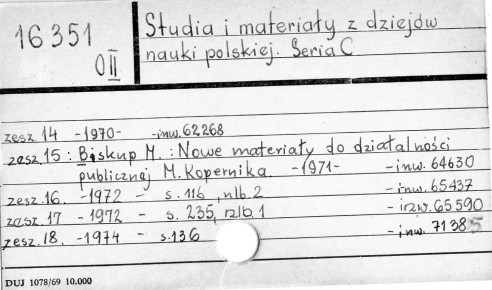 16351
OII
Studia i materiały z dziejów
nauki polskiej. Seria C
zesz. 14 -1970- -inw. 62268
zesz. 15 : Biskup M. : Nowe materiały do działalności
publicznej M. Kopernika. -1971- -inw. 64630
zesz. 16. -1972 - s. 116, nlb. 2 -inw. 65437
zesz. 17 -1972 - s. 235, nlb. 1 -inw. 65590
zesz. 18. -1974 - s. 136 -inw. 71385
DUJ 1078/69 10.000